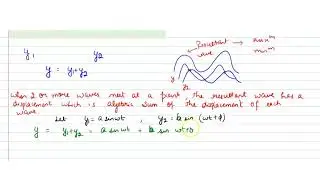 Resultant → maxm
wave minm
y1 y2
y = y1+y2
y2
when 2 or more waves meet at a point, the resultant wave has a
displacement which is algebraic sum of the displacement of each
wave.
Let y1 = a sin wt , y2 = b sin (wt + ϕ)
y = y1+y2 = a sin wt + b sin wt+ϕ